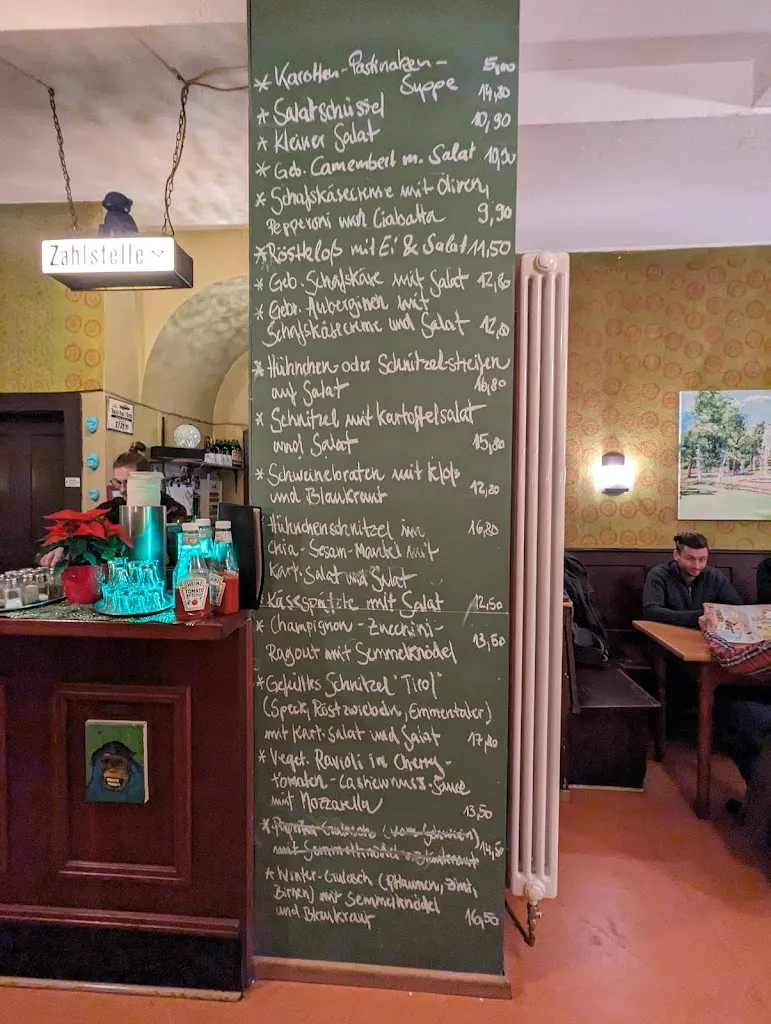 * Karotten-Pastinaken- 5,00
Suppe
* Salatschüssel 14,80
* Kleiner Salat 10,90
* Geb. Camembert m. Salat 10,90
* Schafskäsecreme mit Oliven,
Pepperoni und Ciabatta 9,90
* Röstkloß mit Ei & Salat 11,50
* Geb. Schafskäse mit Salat 12,80
* Gebr. Auberginen mit
Schafskäsecreme und Salat 12,80
* Hühnchen- oder Schnitzelstreifen
auf Salat 16,80
* Schnitzel mit Kartoffelsalat
und Salat 15,80
* Schweinebraten mit Kloß
und Blaukraut 12,80
Hühnchenschnitzel im 16,80
Chia-Sesam-Mantel mit
Kart.Salat und Salat
Käsespätzle mit Salat 12,50
* Champignon-Zucchini-
Ragout mit Semmelknödel 13,50
* Gefülltes Schnitzel "Tirol"
(Speck, Röstzwiebeln, Emmentaler)
mit Kart.Salat und Salat 17,80
* Veget. Ravioli in Cherry-
tomaten-Cashewnuss-Sauce
mit Mozzarella 13,50
* Paprika-Gulasch (vom Schwein)
mit Semmelknödel + Blaukraut 14,50
* Winter-Gulasch (Pflaumen, Zimt,
Birnen) mit Semmelknödel
und Blaukraut 16,50
Zahlstelle
HEINZ
TOMATO
KETCHUP